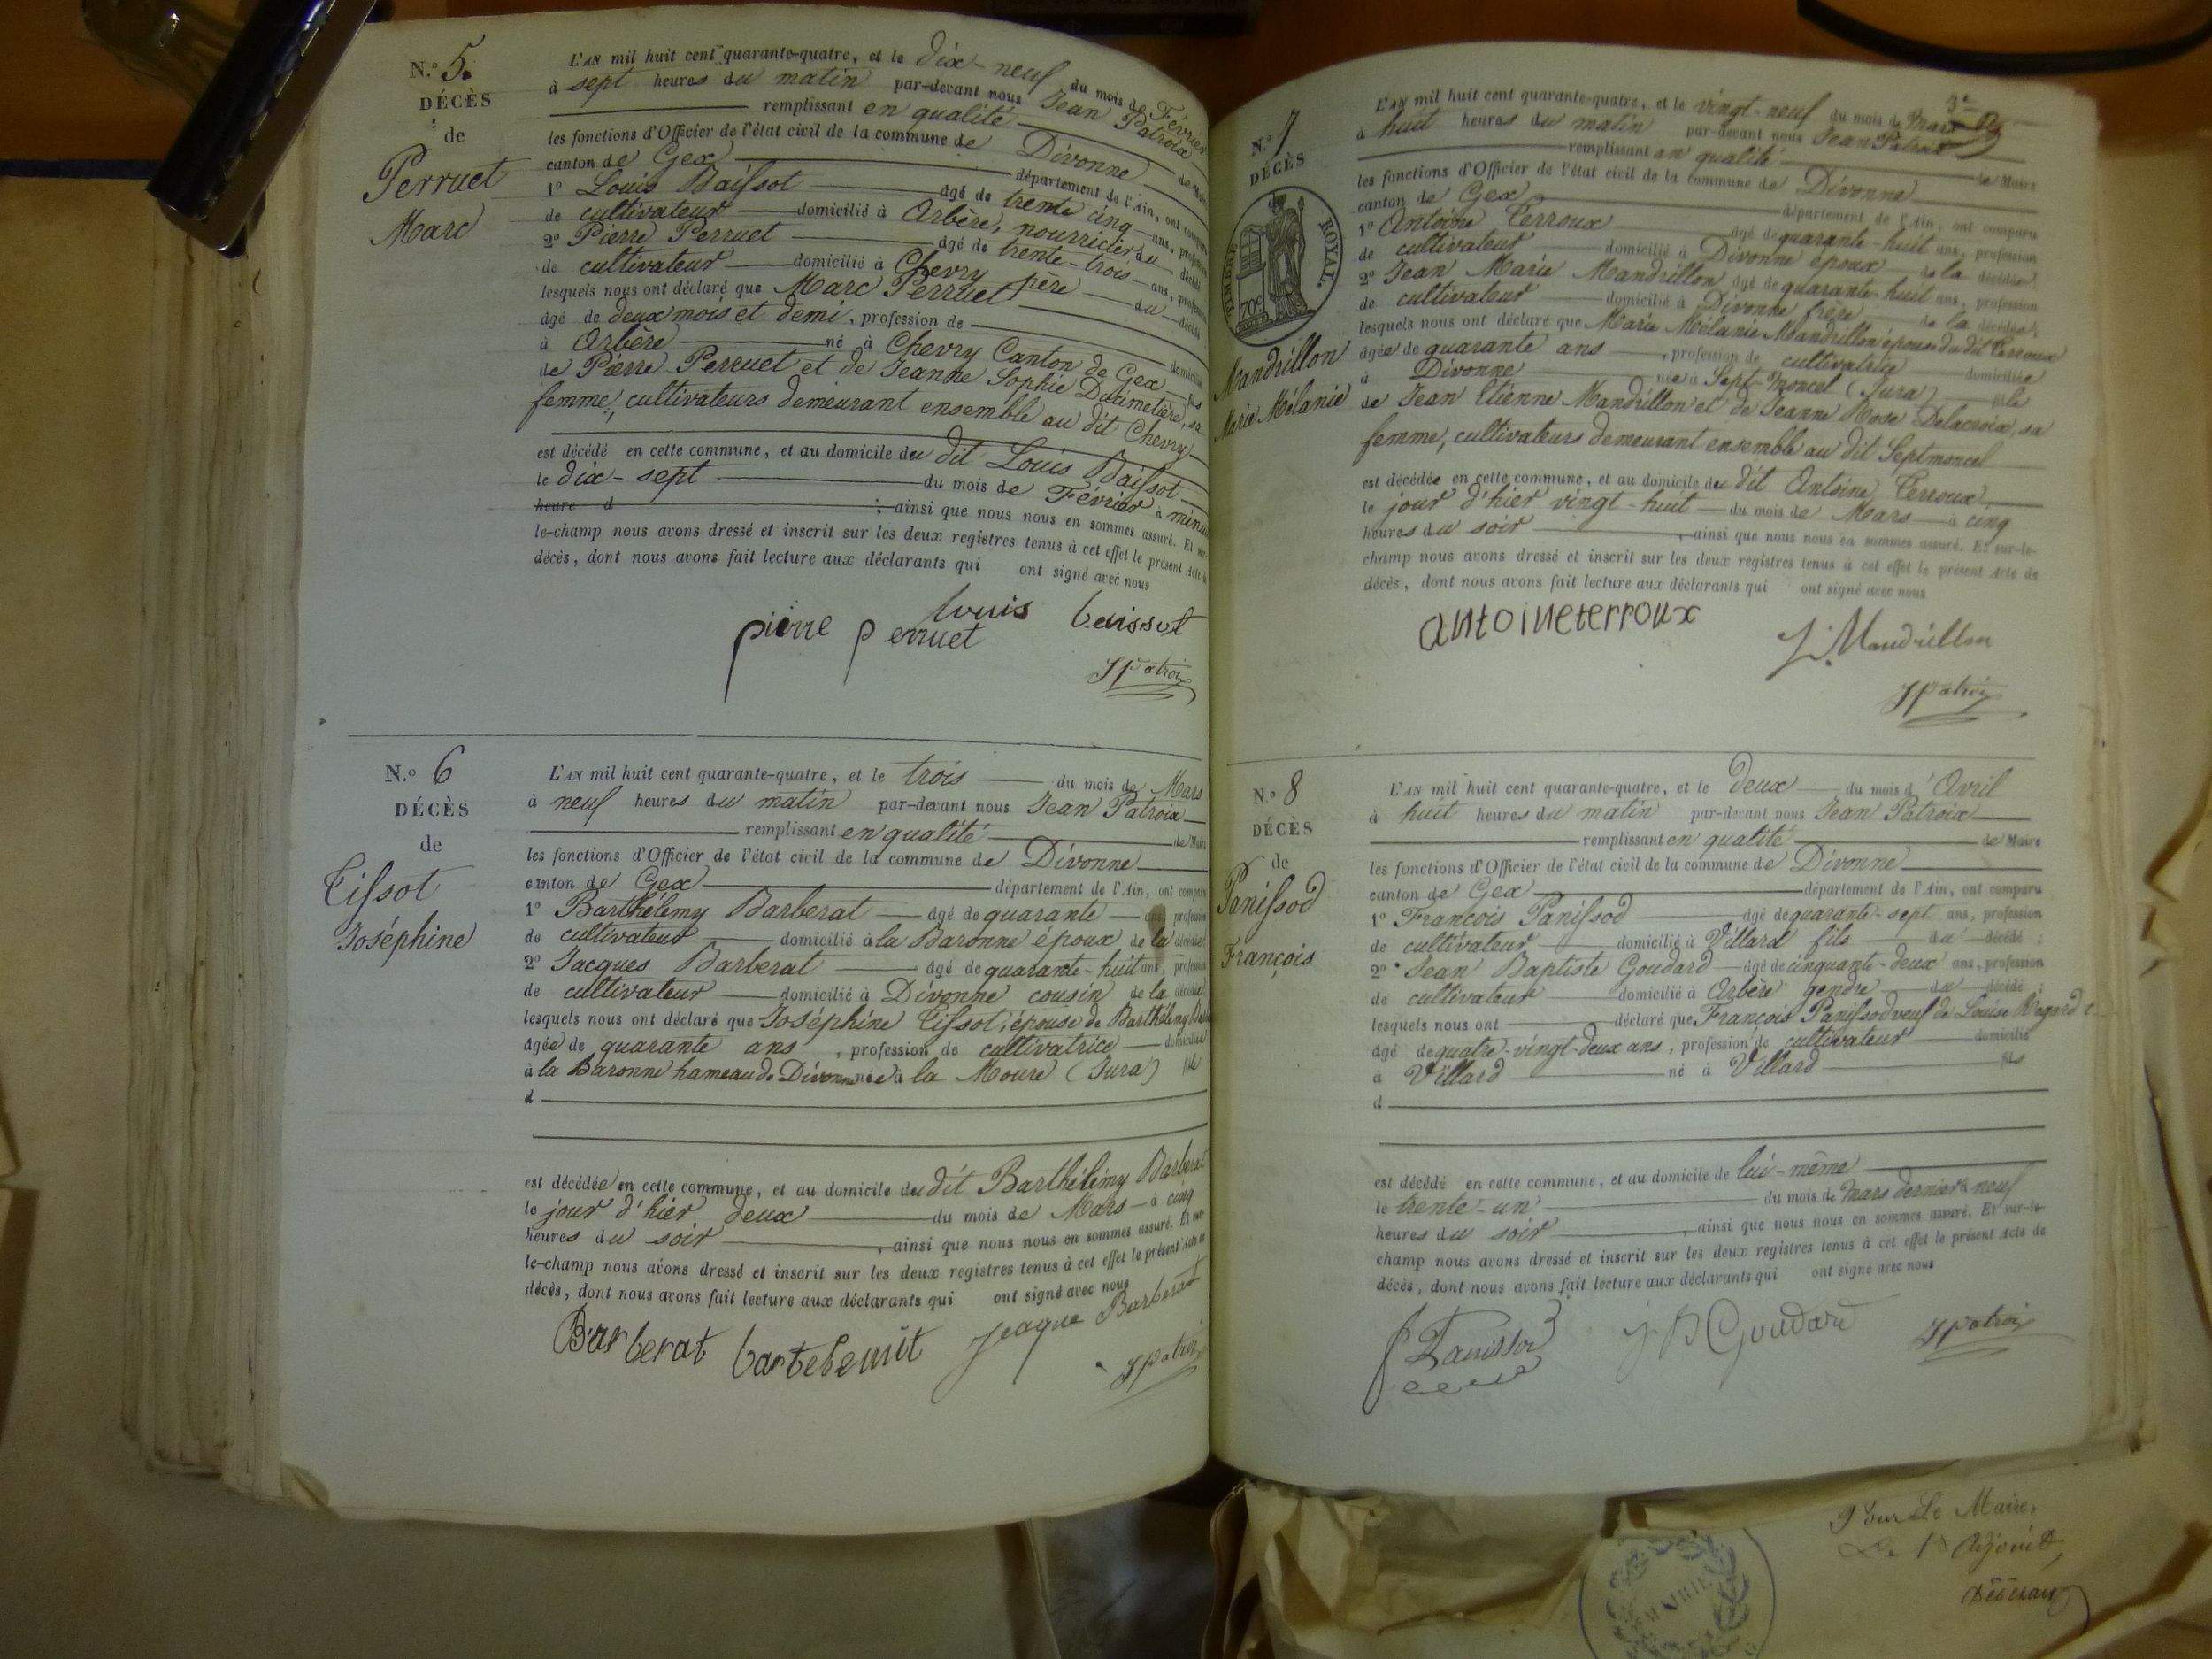 N.º 5.
DÉCÈS
de
Perruet
Marc
L'AN mil huit cent quarante-quatre, et le dix-neuf du mois de Février
à sept heures du matin par-devant nous Jean Patroix
remplissant en qualité de Maire
les fonctions d'Officier de l'état civil de la commune de Divonne
canton de Gex département de l'Ain, ont comparu
1º Louis Baissot âgé de trente cinq ans, profession
de cultivateur domicilié à Arbère, nourricier du décédé
2º Pierre Perruet âgé de trente-trois ans, profession
de cultivateur domicilié à Chevry père du décédé
lesquels nous ont déclaré que Marc Perruet
âgé de deux mois et demi, profession de domicilié
à Arbère né à Chevry Canton de Gex fils
de Pierre Perruet et de Jeanne Sophie Ducimetière, sa
femme, cultivateurs demeurant ensemble au dit Chevry
est décédé en cette commune, et au domicile du dit Louis Baissot
le dix-sept du mois de Février à minuit
heure d ; ainsi que nous nous en sommes assuré. Et sur-
le-champ nous avons dressé et inscrit sur les deux registres tenus à cet effet le présent Acte de
décès, dont nous avons fait lecture aux déclarants qui ont signé avec nous
louis baissot
pierre perruet
JPatroix
N.º 6
DÉCÈS
de
Tissot
Joséphine
L'AN mil huit cent quarante-quatre, et le trois du mois de Mars
à neuf heures du matin par-devant nous Jean Patroix
remplissant en qualité de Maire
les fonctions d'Officier de l'état civil de la commune de Divonne
canton de Gex département de l'Ain, ont comparu
1º Barthélemy Barberat âgé de quarante ans, profession
de cultivateur domicilié à la Baronne époux de la décédée
2º Jacques Barberat âgé de quarante-huit ans, profession
de cultivateur domicilié à Divonne cousin de la décédée
lesquels nous ont déclaré que Joséphine Tissot, épouse de Barthélemy
âgée de quarante ans, profession de cultivatrice domiciliée
à la Baronne hameau de Divonne née à la Moure (Jura) fille
d
est décédée en cette commune, et au domicile du dit Barthélémy Barberat
le jour d'hier deux du mois de Mars à cinq
heures du soir, ainsi que nous nous en sommes assuré. Et sur-
le-champ nous avons dressé et inscrit sur les deux registres tenus à cet effet le présent Acte de
décès, dont nous avons fait lecture aux déclarants qui ont signé avec nous
Barberat Jeaque Barberat
JPatroix
N.º 7
DÉCÈS
de
TIMBRE ROYAL.
70c
Mandrillon
Marie Mélanie
L'AN mil huit cent quarante-quatre, et le vingt-neuf du mois de Mars
à huit heures du matin par-devant nous Jean Patroix
remplissant en qualité de Maire
les fonctions d'Officier de l'état civil de la commune de Divonne
canton de Gex département de l'Ain, ont comparu
1º Antoine Terroux âgé de quarante-huit ans, profession
de cultivateur domicilié à Divonne époux de la décédée
2º Jean Marie Mandrillon âgé de quarante-huit ans, profession
de cultivateur domicilié à Divonne frère de la décédée
lesquels nous ont déclaré que Marie Mélanie Mandrillon épouse du dit Terroux
âgée de quarante ans, profession de cultivatrice domiciliée
à Divonne née à Sept-Moncel (Jura) fille
de Jean Etienne Mandrillon et de Jeanne Rose Delacroix, sa
femme, cultivateurs demeurant ensemble au dit Septmoncel
est décédée en cette commune, et au domicile du dit Antoine Terroux
le jour d'hier vingt-huit du mois de Mars à cinq
heures du soir, ainsi que nous nous en sommes assuré. Et sur-le-
champ nous avons dressé et inscrit sur les deux registres tenus à cet effet le présent Acte de
décès, dont nous avons fait lecture aux déclarants qui ont signé avec nous
antoineterroux
J. Mandrillon
JPatroix
N.º 8
DÉCÈS
de
Panissod
François
L'AN mil huit cent quarante-quatre, et le deux du mois d'Avril
à huit heures du matin par-devant nous Jean Patroix
remplissant en qualité de Maire
les fonctions d'Officier de l'état civil de la commune de Divonne
canton de Gex département de l'Ain, ont comparu
1º François Panissod âgé de quarante-sept ans, profession
de cultivateur domicilié à Villard fils du décédé;
2º Jean Baptiste Goudard âgé de cinquante-deux ans, profession
de cultivateur domicilié à Arbère gendre du décédé;
lesquels nous ont déclaré que François Panissod veuf de Louise
âgé de quatre-vingt-deux ans, profession de cultivateur domicilié
à Villard né à Villard fils
d
est décédé en cette commune, et au domicile de lui-même
le trente-un du mois de Mars dernier à neuf
heures du soir, ainsi que nous nous en sommes assuré. Et sur-le-
champ nous avons dressé et inscrit sur les deux registres tenus à cet effet le présent Acte de
décès, dont nous avons fait lecture aux déclarants qui ont signé avec nous
f Panissod JB Goudard JPatroix
Pour Le Maire,
MAIRIE